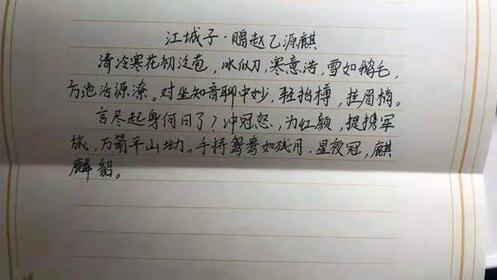 江城子·赠赵乙源麒
清冷寒花初泛苞,冰似刀,寒意浩,雪如鹅毛,
方池冶源潦。对坐知音聊中妙,轻抬樽,挂眉梢。
言尽起身何日了?冲冠怒,为红颜,提携军
旅,万箭平山坳。手持鸳鸯如残月,星夜冠,麒
麟貂。